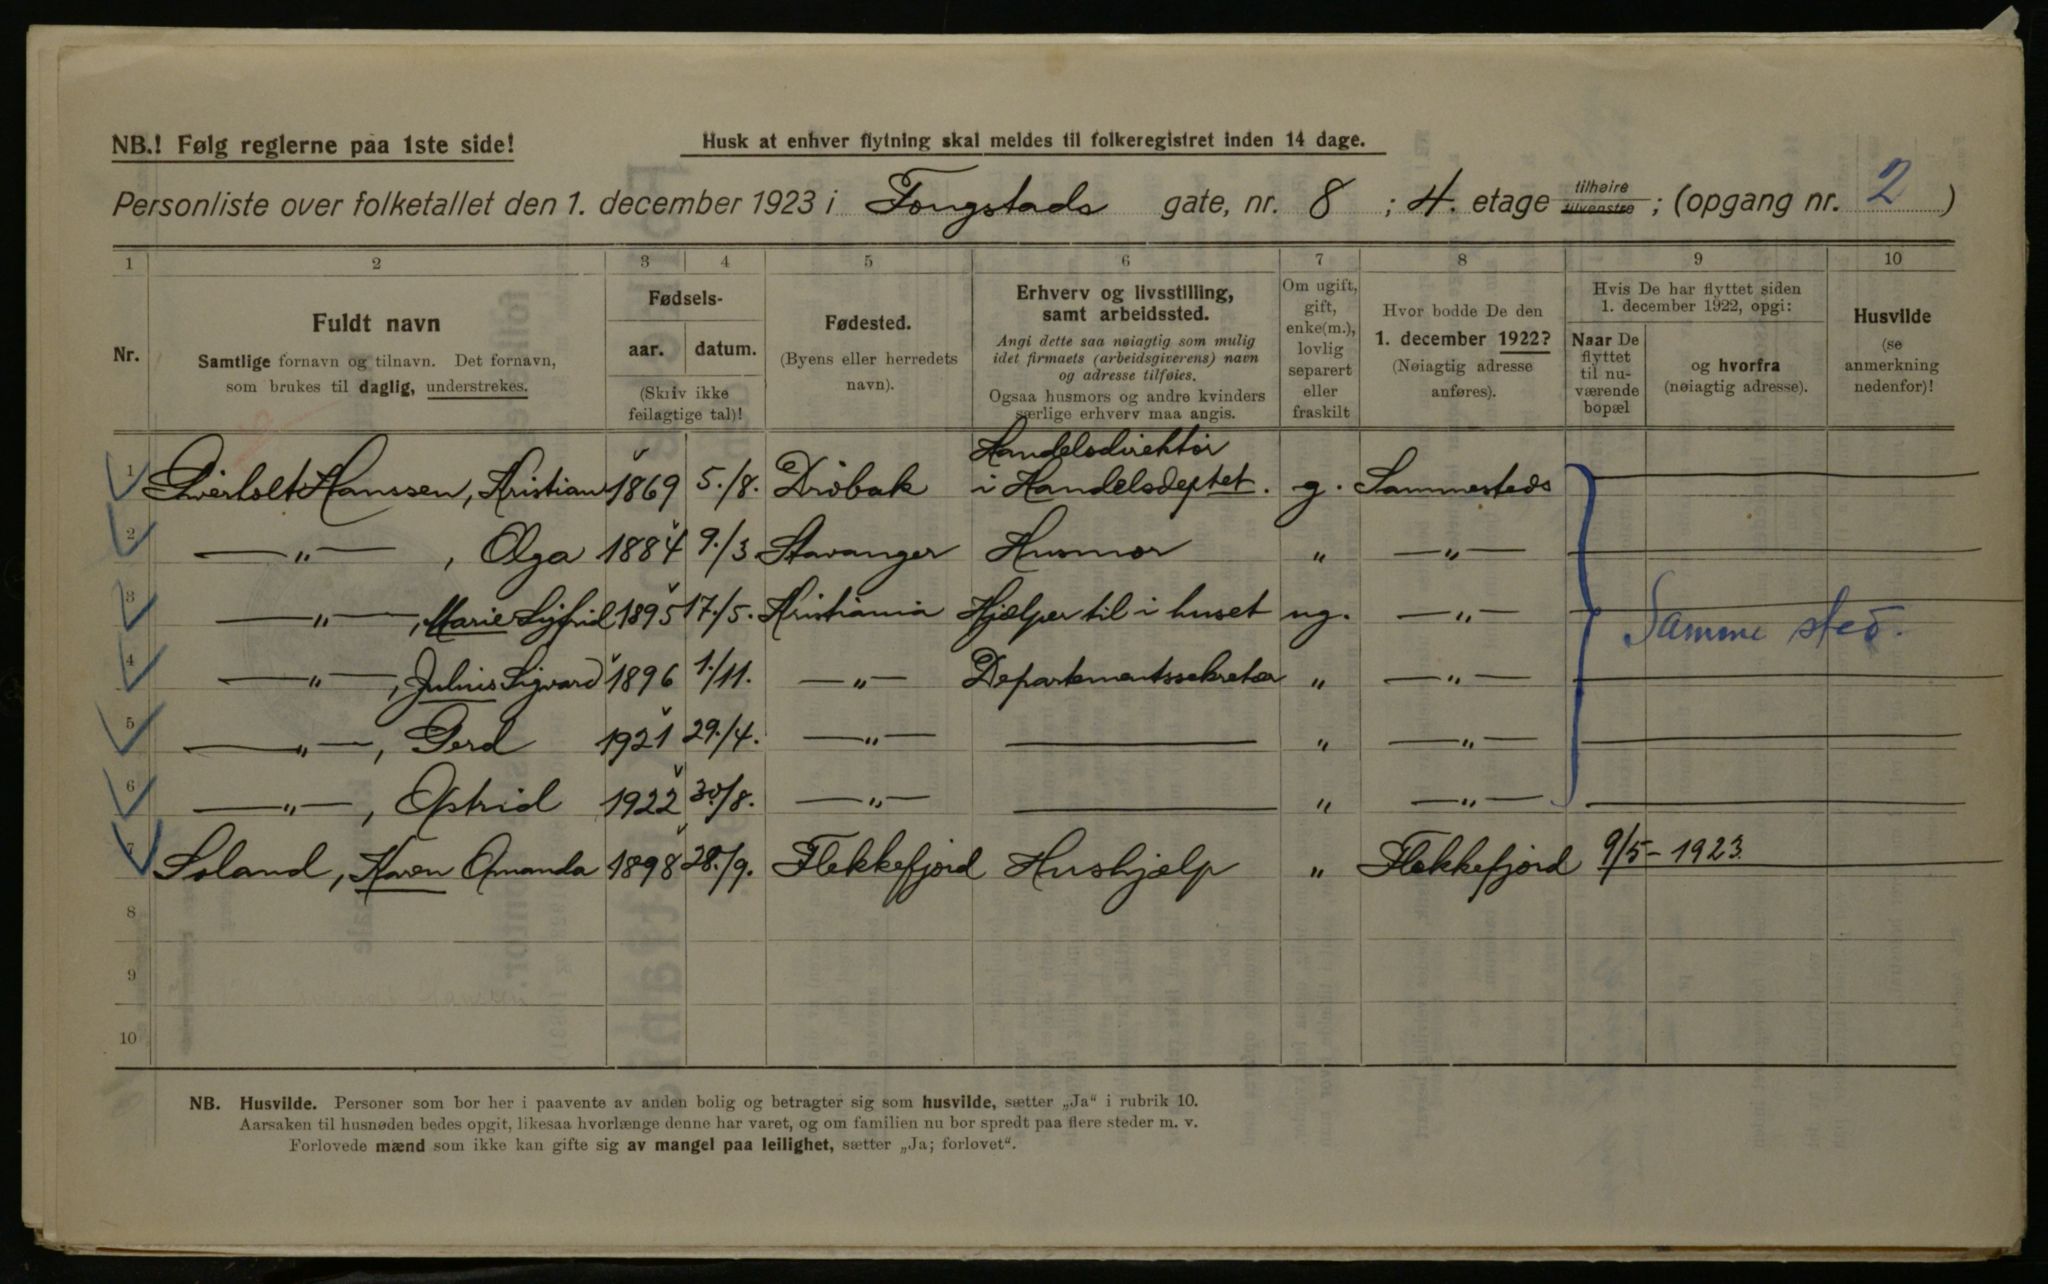 NB.! Følg reglerne paa 1ste side!
Husk at enhver flytning skal meldes til folkeregistret inden 14 dage.
Personliste over folketallet den 1. december 1923 i Fougstads gate, nr. 8 ; 4. etage tilhøire tilvenstre ; (opgang nr. 2 )
1 2 3 4 5 6 7 8 9 10
Nr.
Fuldt navn
Samtlige fornavn og tilnavn. Det fornavn,
som brukes til daglig, understrekes.
Fødsels-
aar. datum.
(Skriv ikke
feilagtige tal)!
Fødested.
(Byens eller herredets
navn).
Erhverv og livsstilling,
samt arbeidssted.
Angi dette saa nøiagtig som mulig
idet firmaets (arbeidsgiverens) navn
og adresse tilføies.
Ogsaa husmors og andre kvinders
særlige erhverv maa angis.
Om ugift,
gift,
enke(m.),
lovlig
separert
eller
fraskilt
Hvor bodde De den
1. december 1922?
(Nøiagtig adresse
anføres).
Hvis De har flyttet siden
1. december 1922, opgi:
Naar De
flyttet
til nu-
værende
bopæl
og hvorfra
(nøiagtig adresse).
Husvilde
(se
anmerkning
nedenfor)!
Handelsdirektør
1 Sverholt Hanssen, Kristian 1869 5./8. Drøbak i Handelsdeptet. g. Sammesteds
2 —„— , Olga 1884 9./3 Stavanger Husmor „ —„—
3 —„— , Marie Sigfrid 1895 17./5. Kristiania Hjælper til i huset ug. —„— Samme sted.
4 —„— , Julius Sigvard 1896 1./11. —„— Departementssekretær „ —„—
5 —„— , Gerd 1921 29./4. —„— — „ —„—
6 —„— , Astrid 1922 30./8. —„— — „ —„—
7 Soland, Karen Amanda 1898 28./9. Flekkefjord Hushjælp „ Flekkefjord 9/5-1923.
8
9
10
NB. Husvilde. Personer som bor her i paavente av anden bolig og betragter sig som husvilde, sætter „Ja“ i rubrik 10.
Aarsaken til husnøden bedes opgit, likesaa hvorlænge denne har varet, og om familien nu bor spredt paa flere steder m. v.
Forlovede mænd som ikke kan gifte sig av mangel paa leilighet, sætter „Ja; forlovet“.